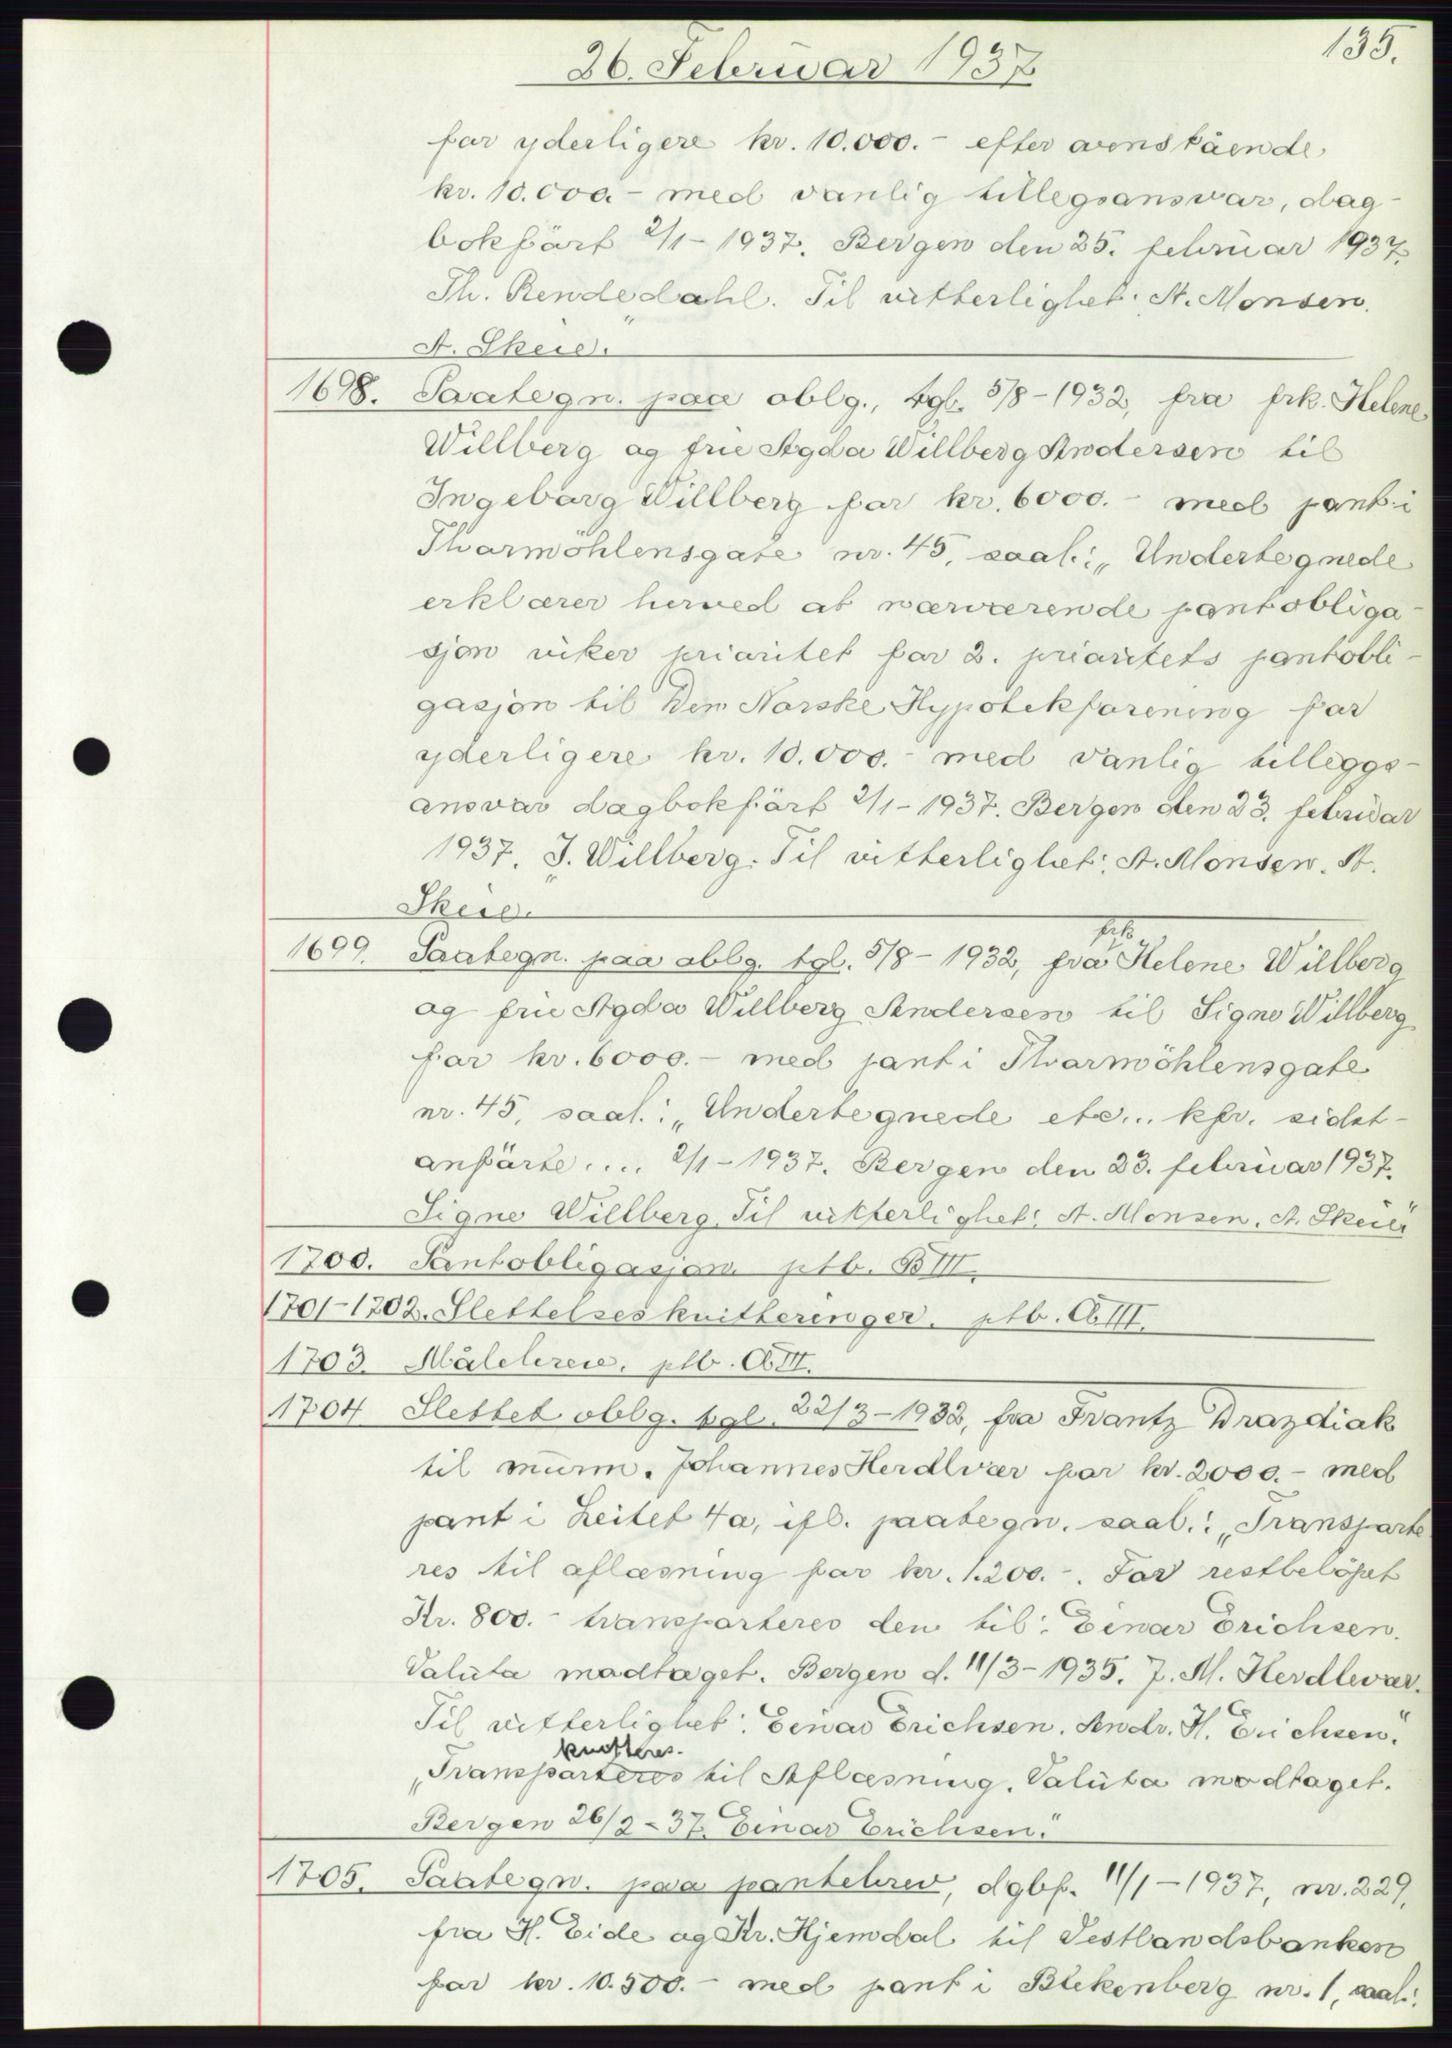 135.
26. Februar 1937
for yderligere kr. 10.000.- efter ovenstående
kr. 10.000.- med vanlig tilleggsansvar, dag-
bokført 2/1-1937. Bergen den 25. februar 1937.
Th. Rendedahl. Til vitterlighet: A. Monsen.
A. Skeie."
1698. Paategn. paa oblg., tgl. 5/8-1932, fra frk. Helene
Willberg og frue Agda Willberg Andersen til
Ingeborg Willberg for kr. 6000.- med pant i
Thormöhlensgate nr. 45, saal.: „Undertegnede
erklærer herved at nærværende pantobliga-
sjon viker prioritet for 2. prioritets pantobli-
gasjon til Den Norske Hypotekforening for
yderligere kr. 10.000.- med vanlig tilleggs-
ansvar dagbokført 2/1-1937. Bergen den 23. februar
1937. J. Willberg. Til vitterlighet: A. Monsen. A.
Skeie."
1699. Paategn. paa oblg. tgl. 5/8-1932, fra frk. Helene Willberg
og frue Agda Willberg Andersen til Signe Willberg
for kr. 6000.- med pant i Thormöhlensgate
nr. 45, saal.: „Undertegnede etc... kfr. sidst-
anførte.... 2/1-1937. Bergen den 23. februar 1937.
Signe Willberg. Til vitterlighet: A. Monsen. A. Skeie"
1700. Pantobligasjon ptb. B III.
1701-1702. Slettelseskvitteringer. ptb. C III.
1703. Målebrev. ptb. C III.
1704 Slettet oblg. tgl. 22/3-1932, fra Frantz Drazdiak
til murm. Johannes Herdlvær for kr. 2000.- med
pant i Leitet 4a, ifl. paategn. saal.: „Transporte
res til aflæsning for kr. 1.200.-. For restbeløpet
Kr. 800.- transporteres den til: Einar Erichsen.
Valuta modtaget. Bergen d. 11/3-1935. J. M. Herdlevær.
Til vitterlighet: Einar Erichsen. Andr. H. Erichsen."
kvitteres.
„Transporteres til Aflæsning. Valuta modtaget.
Bergen 26/2-37. Einar Erichsen."
1705. Paategn. paa pantebrev, dgbf. 11/1-1937, nr. 229,
fra H. Eide og Kr. Hjemdal til Vestlandsbanken
for kr. 10.500.- med pant i Blekenberg nr. 1, saal.: